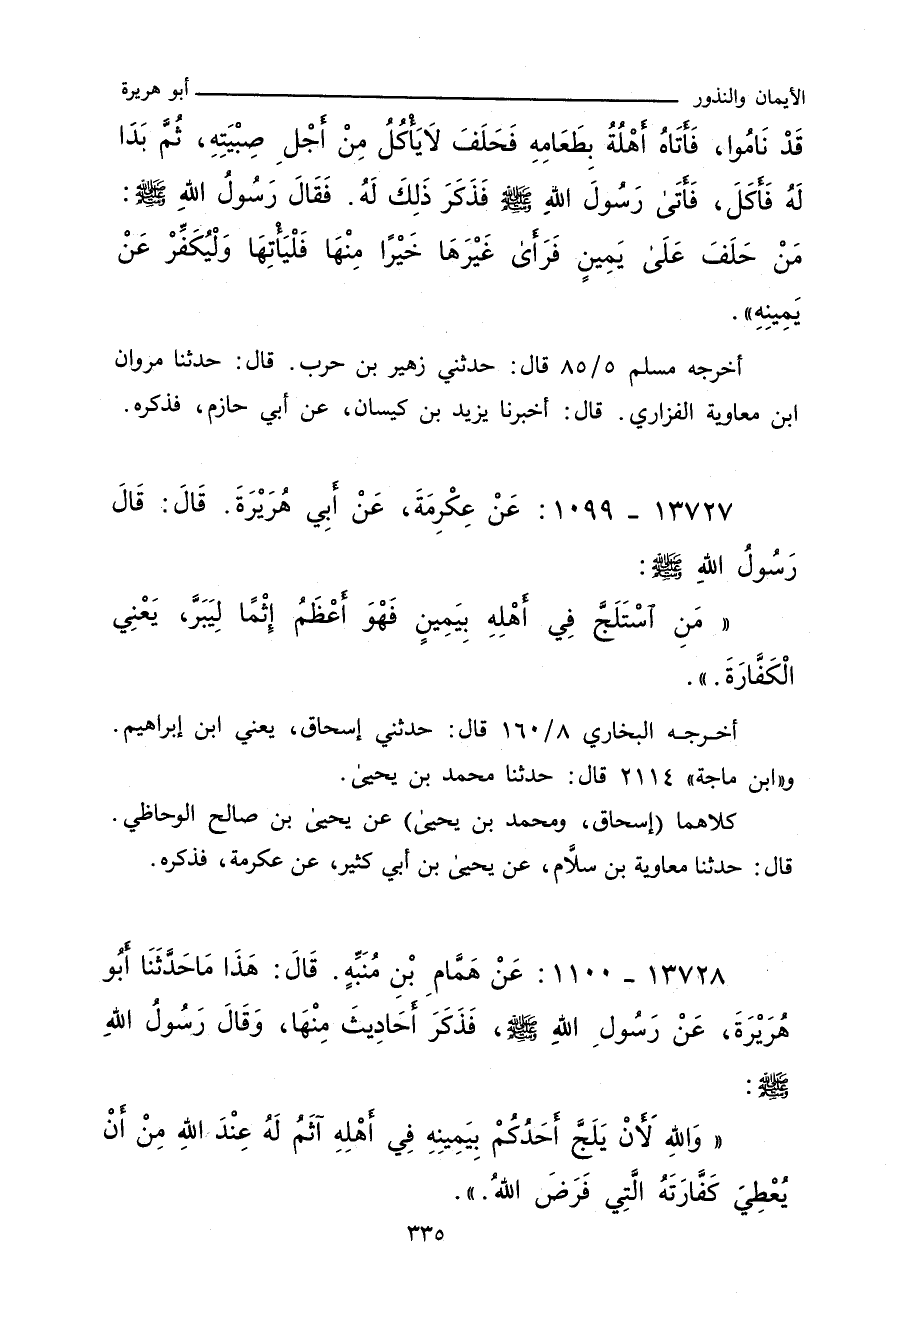 الأيمان والنذور ــــــــــــ أبو هريرة
قَدْ نَامُوا، فَأَتَاهُ أَهْلُهُ بِطَعَامِهِ فَحَلَفَ لَايَأْكُلُ مِنْ أَجْلِ صِبْيَتِهِ، ثُمَّ بَدَا
لَهُ فَأَكَلَ، فَأَتَىٰ رَسُولَ اللهِ ﷺ فَذَكَرَ ذَلِكَ لَهُ. فَقَالَ رَسُولُ اللهِ ﷺ:
مَنْ حَلَفَ عَلَىٰ يَمِينٍ فَرَأَىٰ غَيْرَهَا خَيْرًا مِنْهَا فَلْيَأْتِهَا وَلْيُكَفِّرْ عَنْ
يَمِينِهِ».
أخرجه مسلم ٨٥/٥ قال: حدثني زهير بن حرب. قال: حدثنا مروان
ابن معاوية الفزاري. قال: أخبرنا يزيد بن كيسان، عن أبي حازم، فذكره.
١٣٧٢٧ - ١٠٩٩: عَنْ عِكْرِمَةَ، عَنْ أَبِي هُرَيْرَةَ. قَالَ: قَالَ
رَسُولُ اللهِ ﷺ:
« مَنِ ٱسْتَلَجَّ فِي أَهْلِهِ بِيَمِينٍ فَهْوَ أَعْظَمُ إِثْمًا لِيَبَرَّ، يَعْنِي
الْكَفَّارَةَ.».
أخـرجـه البخاري ١٦٠/٨ قال: حدثني إسحاق، يعني ابن إبراهيم.
و«ابن ماجة» ٢١١٤ قال: حدثنا محمد بن يحيىٰ.
كلاهما (إسحاق، ومحمد بن يحيىٰ) عن يحيىٰ بن صالح الوحاظي.
قال: حدثنا معاوية بن سلَّام، عن يحيىٰ بن أبي كثير، عن عكرمة، فذكره.
١٣٧٢٨ - ١١٠٠: عَنْ هَمَّامِ بْنِ مُنَبِّهٍ. قَالَ: هَذَا مَاحَدَّثَنَا أَبُو
هُرَيْرَةَ، عَنْ رَسُولِ اللهِ ﷺ، فَذَكَرَ أَحَادِيثَ مِنْهَا، وَقَالَ رَسُولُ اللهِ
ﷺ:
« وَاللهِ لَأَنْ يَلَجَّ أَحَدُكُمْ بِيَمِينِهِ فِي أَهْلِهِ آثَمُ لَهُ عِنْدَ اللهِ مِنْ أَنْ
يُعْطِيَ كَفَّارَتَهُ الَّتِي فَرَضَ اللهُ.».
٣٣٥